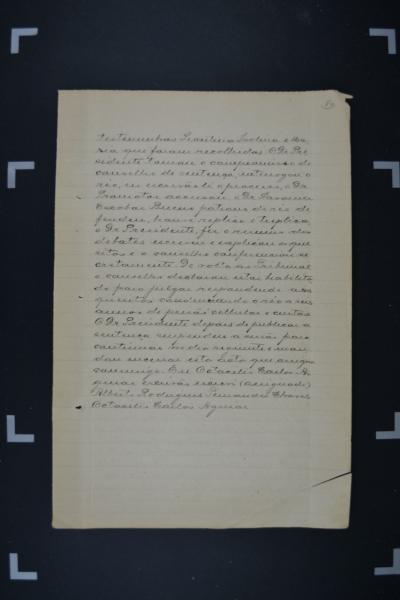 testemunhas Brasilina Avelina e Ma-
ria que foram recolhidas O Dr Pre-
sidente tomou o compromisso do
conselho de sentença, interrogou o
réo, o escrivão leu o processo, o Dr
Promotor accusou, o Dr
Escobar patrono do réo de-
fendeu, houve replica e treplica,
o Dr Presidente, fez o resumo dos
debates escreveu e explicou os que-
sitos e o conselho conferenciou se-
cretamente. De volta ao Tribunal
o conselho declarou estar habilita-
do para julgar respondendo aos
quesitos condemnando o réo a seis
annos de prisão cellular e custas
O Dr Presidente depois de publicar a
sentença suspendeu a sessão para
continuar no dia seguinte e man-
dou encerrar esta acta que assigna
commigo. Eu Octacilio Carlos A-
guiar escrivão escrevi (assignado)
Alberto Rodrigues Fernandes Chaves
Octacilio Carlos Aguiar